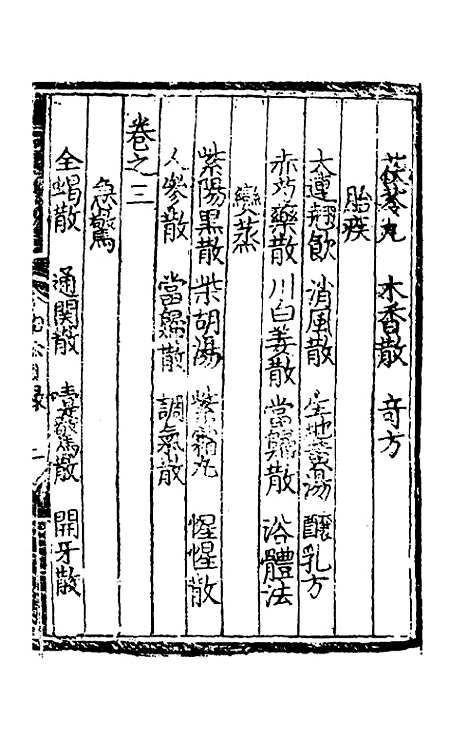 茯苓丸　木香散　奇方
胎疾
大連翹飲　消風散　生地黃湯　釀乳方
赤芍藥散　川白姜散　當歸散　浴體法
變蒸
紫陽黑散　柴胡湯　紫霜丸　惺惺散
人參散　當歸散　調氣散
卷之三
急驚
全蝎散　通關散　嚏驚散　開牙散